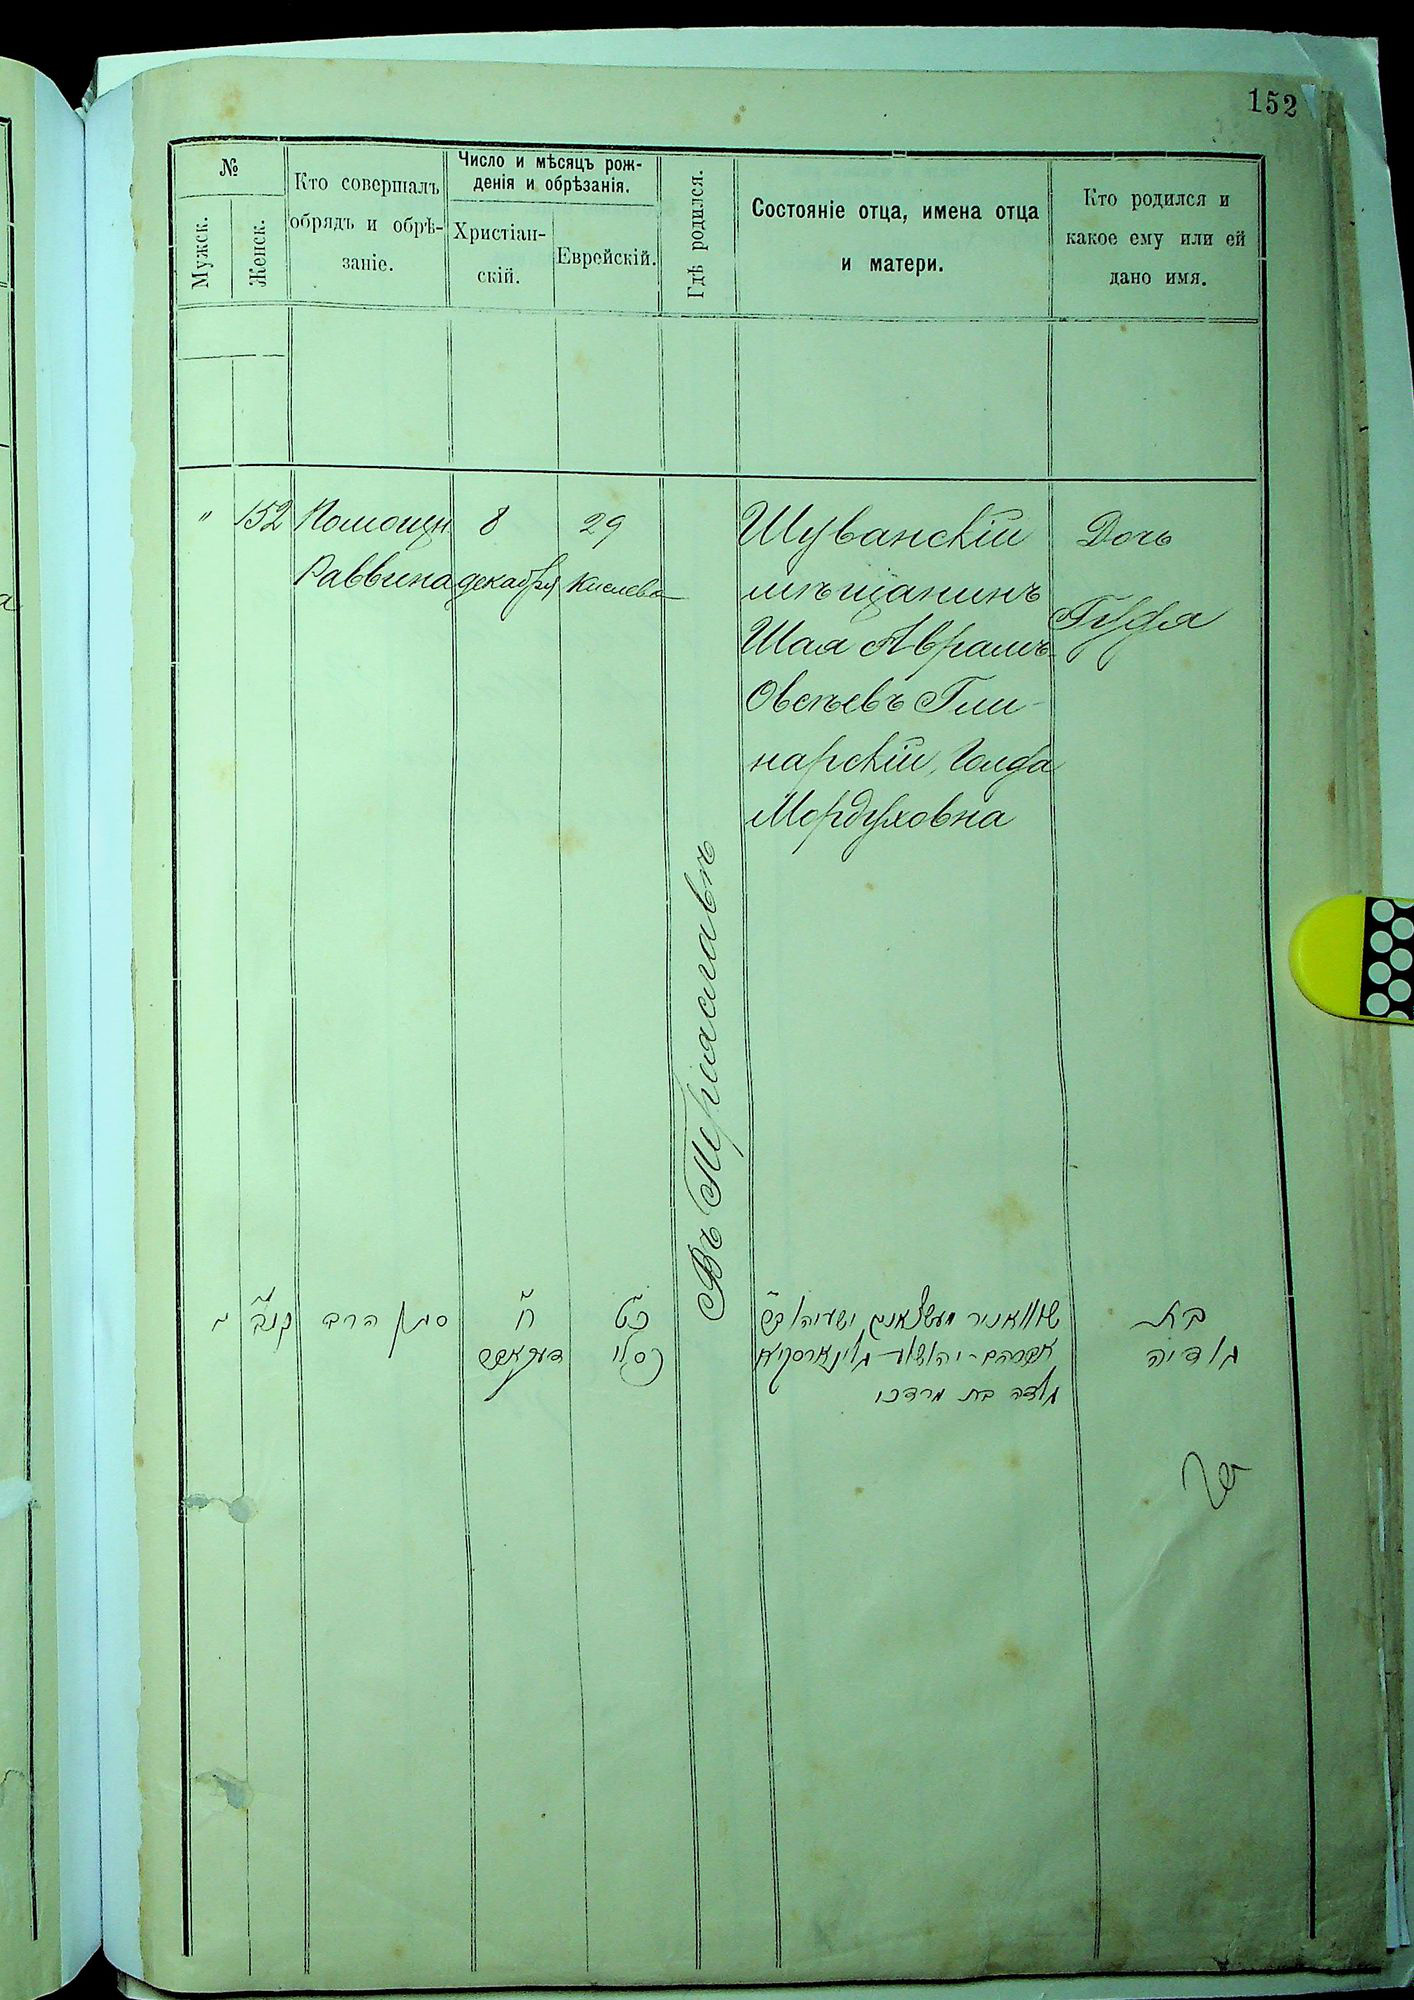 152
№
Мужск.
Женск.
Кто совершалъ
обрядъ и обрѣ-
заніе.
Число и мѣсяцъ рож-
денія и обрѣзанія.
Христіан-
скій.
Еврейскій.
Гдѣ родился.
Состояніе отца, имена отца
и матери.
Кто родился и
какое ему или ей
дано имя.
" 152
Помощн.
Раввина
8
декабря
29
Кислева
Въ Переяславѣ
Шуванскій
мѣщанинъ
Шая Аврамъ-
Овсѣевъ Гли-
нарскій, Голда
Мордуховна
Дочь
קנב
סגן הרב
ח
כט
כסליו
אברהם - יהושע
גולדה בת מרדכי
בת
גודיה